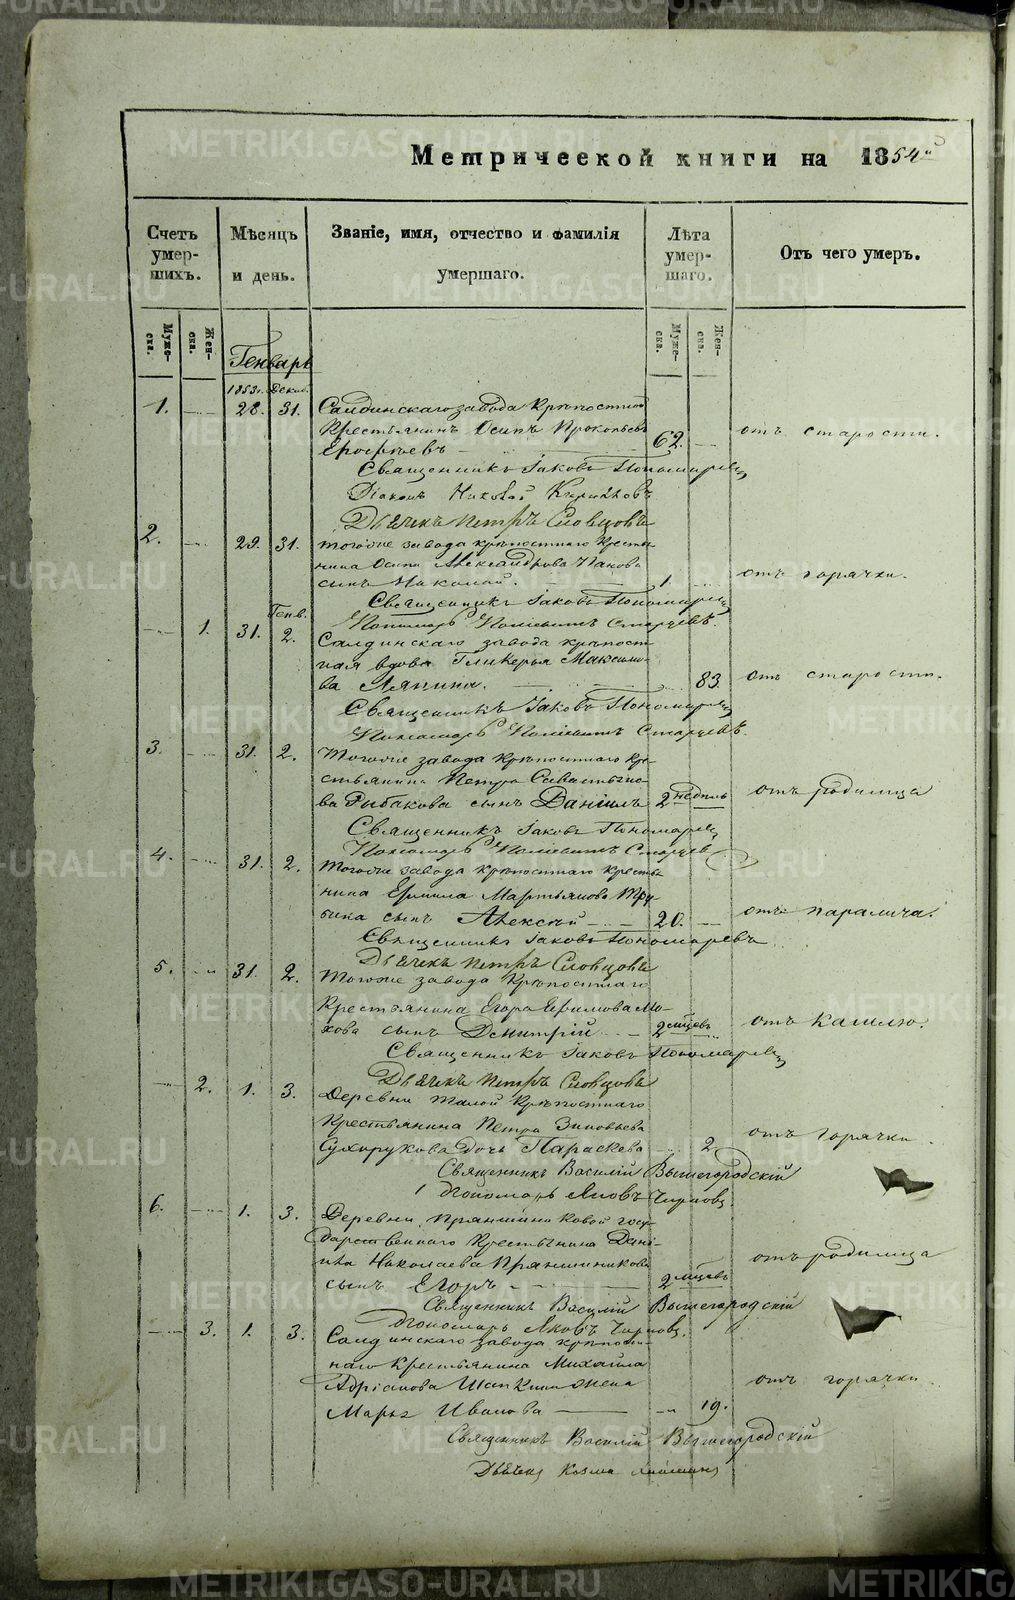 Метрической книги на 1854й
Счетъ умер-шихъ.
Мѣсяцъ и день.
Званіе, имя, отчество и фамилія умершаго.
Лѣта умер-шаго.
Отъ чего умеръ.
Муже-ска.
Жен-ска.
Муже-ска.
Жен-ска.
Генварь
1853г. Декаб.
1. 28. 31. Салдинскаго завода Крѣпостной
Крестьянинъ Осипъ Прокопьевъ 62. отъ старости.
Ерофѣевъ
Священникъ Іаковъ Пономаревъ
Діаконъ Николай
Дьячекъ Петръ Словцовъ
2. 29. 31. тогоже завода крѣпостнаго Кресть-
янина Осипа Александрова Панова отъ горячки.
сынъ Николай. 1.
Священникъ Іаковъ Пономаревъ
Генв.
Пономарь Старцевъ.
1. 31. 2. Салдинскаго завода крѣпост-
ная вдова Гликерья Максимо-
ва Ляпина. 83. отъ старости.
Священникъ Іаковъ Пономаревъ
Пономарь Старцевъ.
3. 31. 2. Тогоже завода Крѣпостнаго Кре-
стьянина Петра Савастьяно-
ва Рыбакова сынъ Даніилъ 2 недѣль отъ родимца
Священникъ Іаковъ Пономаревъ
Пономарь Старцев
4. 31. 2. Тогоже завода крѣпостнаго кресть-
янина Ермила Мартьянова Тру-
бина сынъ Алексѣй 20. отъ паралича.
Священникъ Іаковъ Пономаревъ
Дьячекъ Петръ Словцовъ
5. 31. 2. Тогоже завода Крѣпостнаго
Крестьянина Егора Ефимова Мо-
хова сынъ Дмитрій 2 мѣсцевъ отъ кашлю.
Священникъ Іаковъ Пономаревъ
Дьячекъ Петръ Словцовъ
2. 1. 3. Деревни Малой Крѣпостнаго
Крестьянина Петра Зиновьева
Сухорукова Дочь Параскева 2 отъ горячки.
Священникъ Василій Вышегородскій
Пономарь Яковъ
6. 1. 3. Деревни Пряншниковой госу-
дарственнаго Крестьянина Дані-
ила Николаева Пряншникова отъ родимца
сынъ Егоръ 2 мѣсцевъ
Священникъ Василій Вышегородскій
Пономарь Яковъ
3. 1. 3. Салдинскаго завода крѣпост-
наго Крестьянина Михайла
Адріанова Шапкина Жена отъ горячки.
Марья Иванова 19.
Священникъ Василій Вышегородскій
Дьячекъ Козма
METRIKI.GASO-URAL.RU